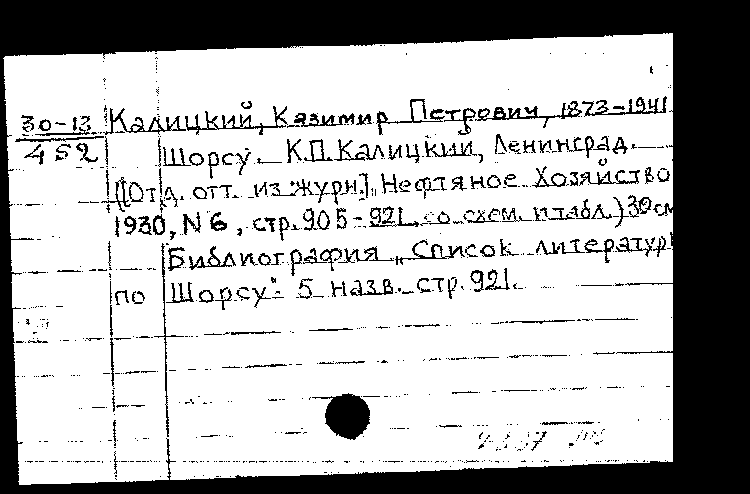 30-13 Калицкий, Казимир Петрович, 1873-1941
452 Шорсу. К.П. Калицкий, Ленинград.
([Отд. отт. из журн.] „Нефтяное Хозяйство
1930, N 6, стр. 905-921, со схем. и табл.) 30 см
Библиография „Список литературы
по Шорсу" - 5 назв. стр. 921.